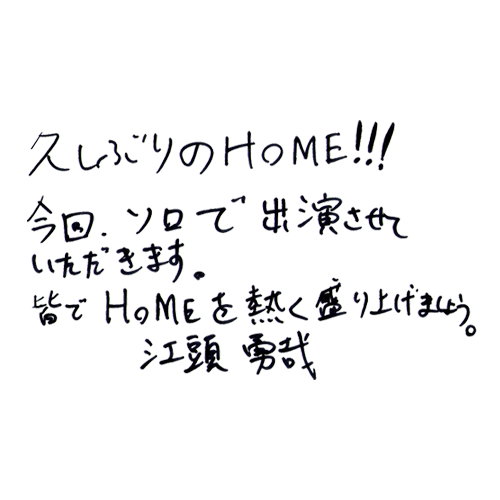 久しぶりのHOME!!!
今回、ソロで出演させて
いただきます。
皆でHOMEを熱く盛り上げましょう。
江頭 勇哉